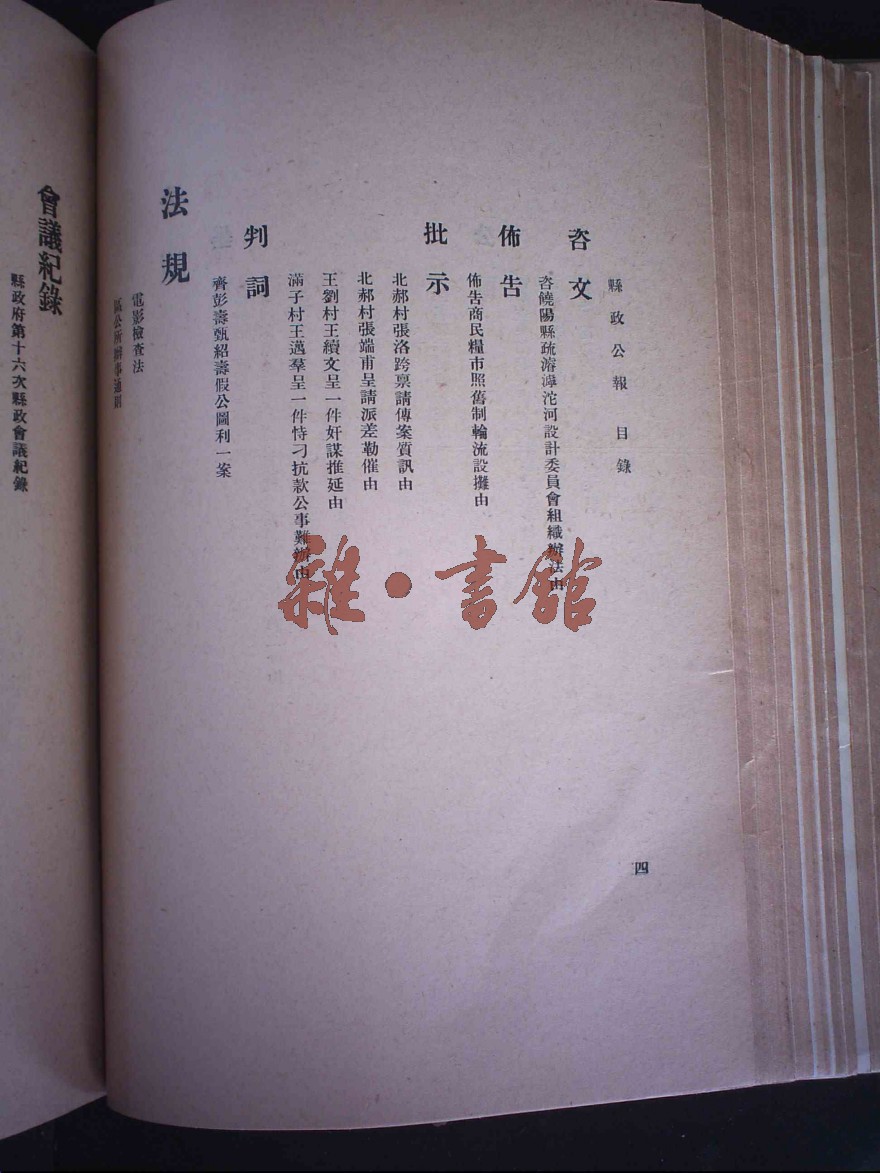 縣政公報 目錄
四
咨文
咨饒陽縣疏濬滹沱河設計委員會組織辦法由
佈告
佈告商民糧市照舊制輪流設攤由
批示
北郝村張洛跨票請傳案質訊由
北郝村張端甫呈請派差勒催由
王劉村王續文呈一件奸謀推延由
滿子村王邁羣呈一件恃刁抗款公事難辦由
判詞
齊彭壽甄紹壽假公圖利一案
法規
電影檢查法
區公所辦事通則
會議紀錄
縣政府第十六次縣政會議紀錄
雜·書館